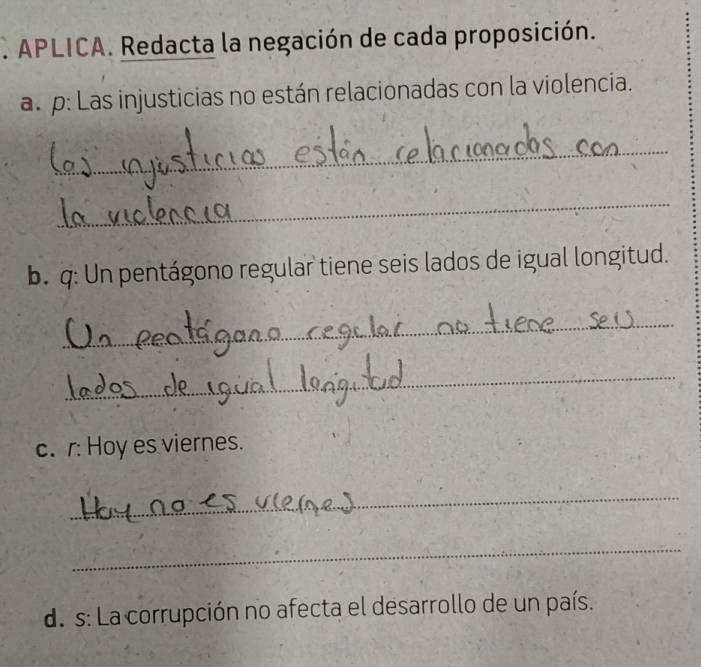 . APLICA. Redacta la negación de cada proposición.
a. p: Las injusticias no están relacionadas con la violencia.
las injusticias están relacionados con
la violencia
b. q: Un pentágono regular tiene seis lados de igual longitud.
Un pentágono regular no tiene seis
lados de igual longitud
c. r: Hoy es viernes.
Hoy no es viernes
d. s: La corrupción no afecta el desarrollo de un país.